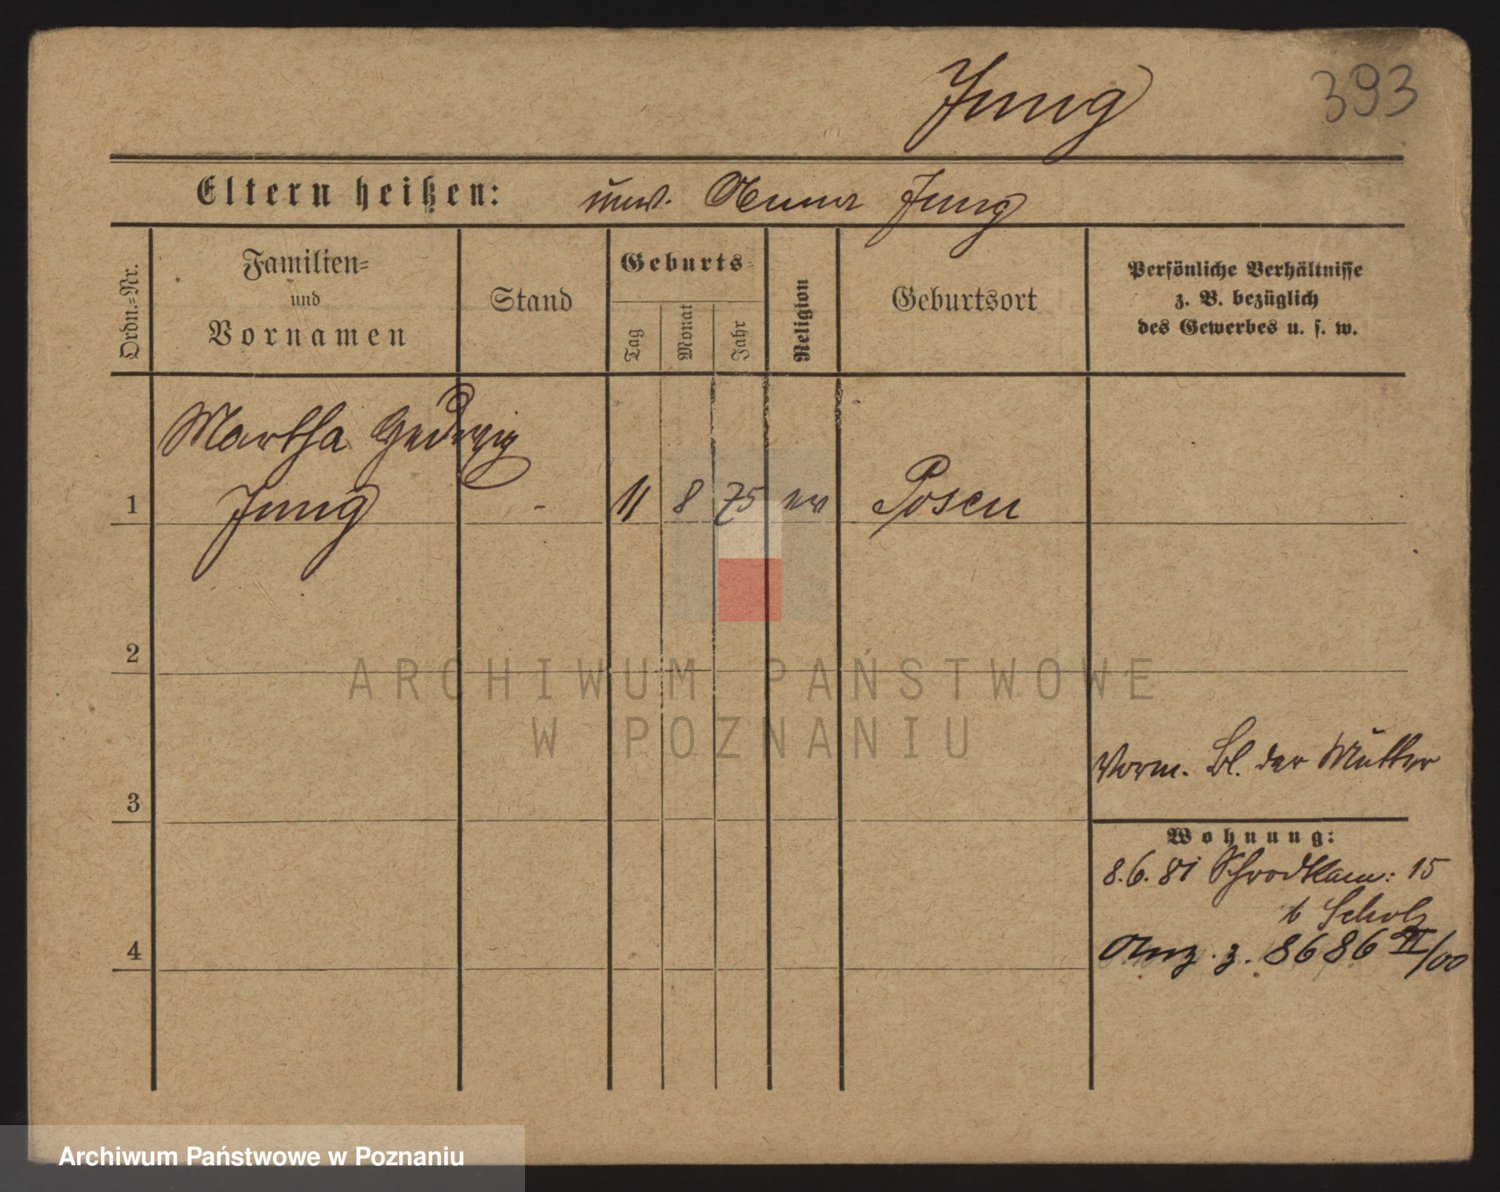 Jung
393
Eltern heißen: unv. Anna Jung
Ordn.-Nr.
Familien-
und
Vornamen
Stand
Geburts-
Tag
Monat
Jahr
Religion
Geburtsort
Persönliche Verhältnisse
z. B. bezüglich
des Gewerbes u. s. w.
Martha Hedwig
1 Jung - 11 8 75 ev Posen
2
ARCHIWUM PAŃSTWOWE
W POZNANIU
Vorm. Bl. der Mutter
3
Wohnung:
8.6.81 Schrodkam: 15
b Scholz
4
Anz. z. 8686 II/00
Archiwum Państwowe w Poznaniu